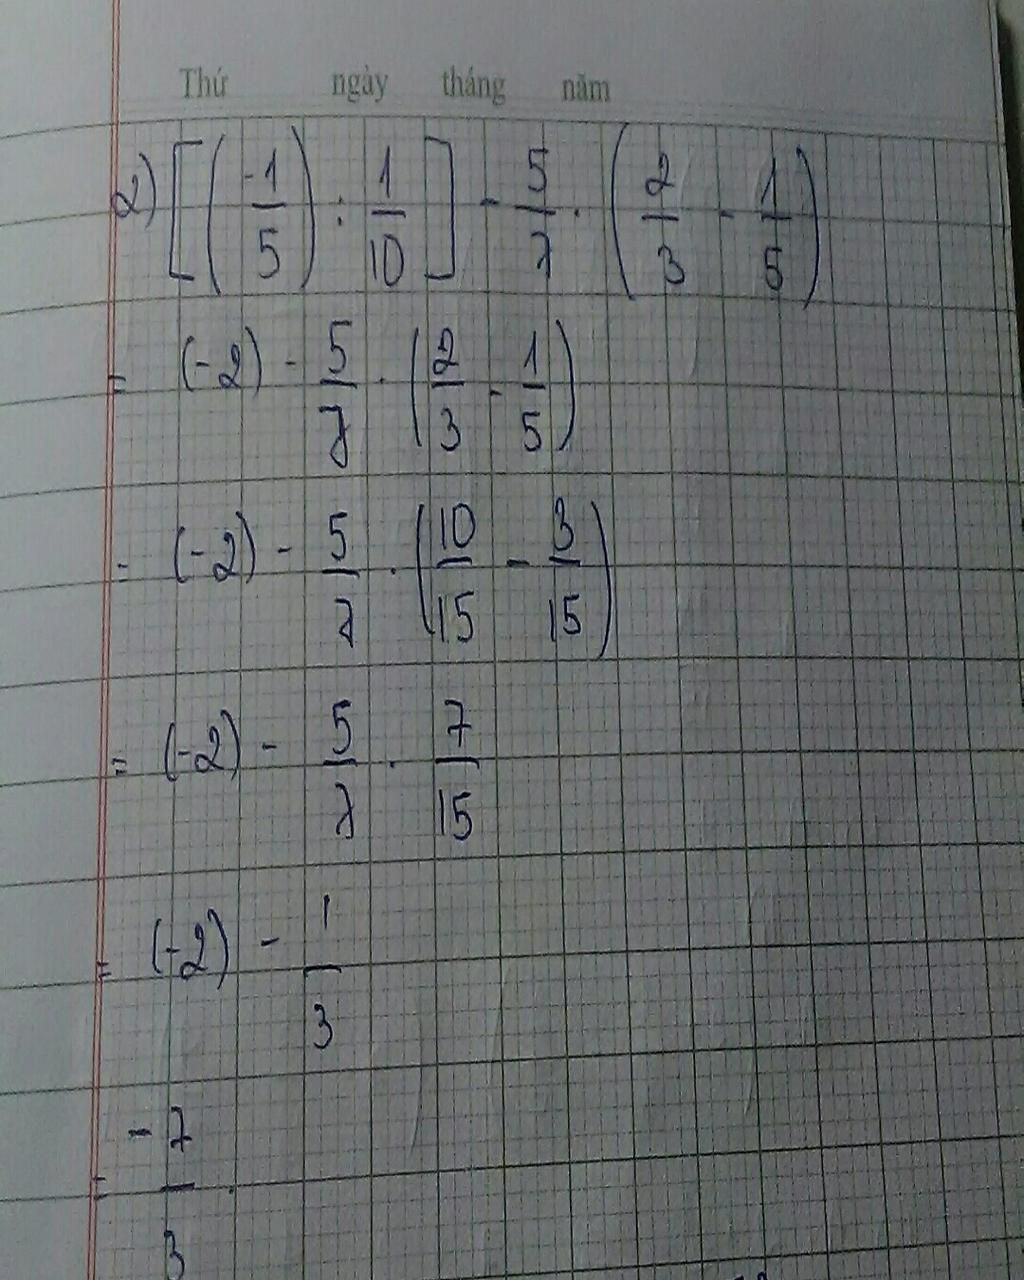 Thứ ngày tháng năm
2) [(-1/5) : 1/10] - 5/7 . (2/3 - 1/5)
= (-2) - 5/7 . (2/3 - 1/5)
= (-2) - 5/7 . (10/15 - 3/15)
= (-2) - 5/7 . 7/15
= (-2) - 1/3
= -7/3 .